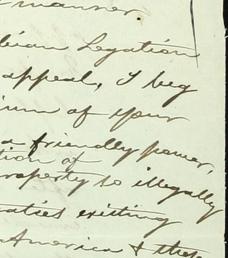 manner
Legation
appeal, I beg
of your
a friendly power,
tion of
property so illegally
existing
America & the